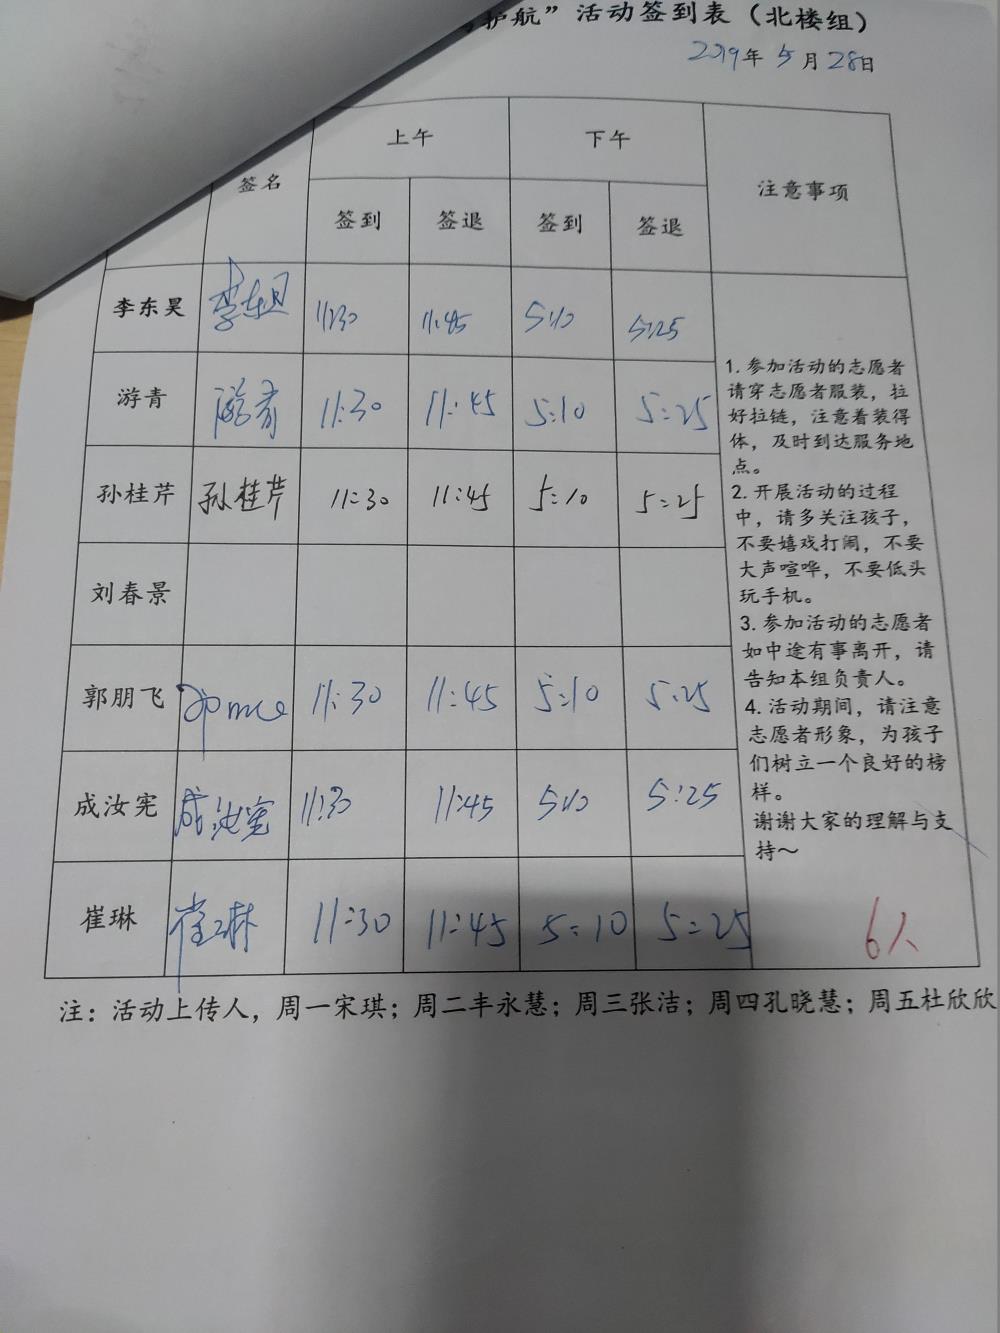 护航”活动签到表（北楼组）
2019年 5月 28日
签名 上午 下午 注意事项
签到 签退 签到 签退
李东昊 李东昊 11:30 11:45 5:10 5:25
游青 游青 11:30 11:45 5:10 5:25
孙桂芹 孙桂芹 11:30 11:45 5:10 5:25
刘春景
郭朋飞 11:30 11:45 5:10 5:25
成汝宪 成汝宪 11:30 11:45 5:10 5:25
崔琳 崔琳 11:30 11:45 5:10 5:25
1. 参加活动的志愿者
请穿志愿者服装，拉
好拉链，注意着装得
体，及时到达服务地
点。
2. 开展活动的过程
中，请多关注孩子，
不要嬉戏打闹，不要
大声喧哗，不要低头
玩手机。
3. 参加活动的志愿者
如中途有事离开，请
告知本组负责人。
4. 活动期间，请注意
志愿者形象，为孩子
们树立一个良好的榜
样。
谢谢大家的理解与支
持～
6人
注：活动上传人，周一宋琪；周二丰永慧；周三张洁；周四孔晓慧；周五杜欣欣